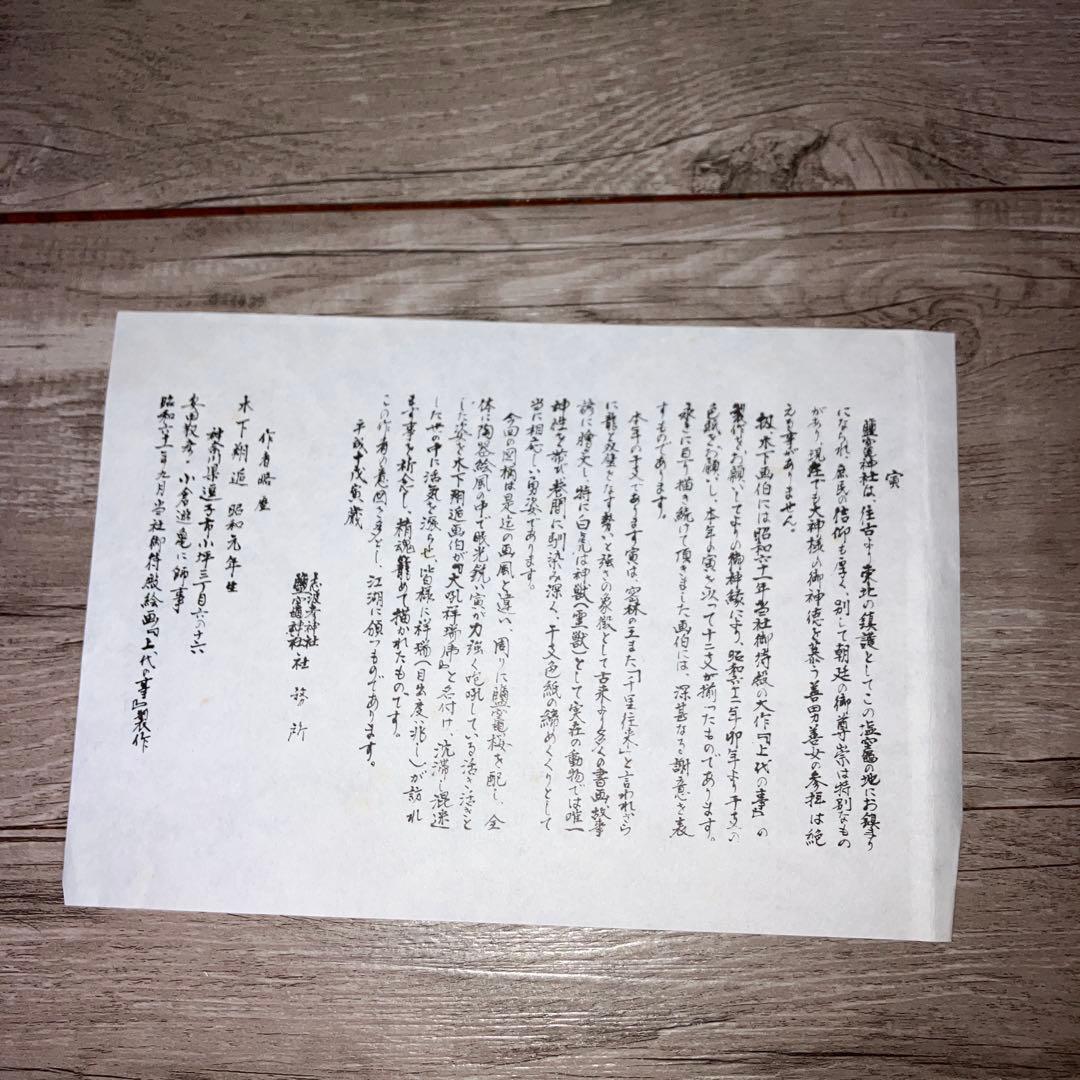 寅
鹽竈神社は、往古より東北の鎮護としてこの塩竈の地にお鎮まり
になられ、庶民の信仰も厚く、別して朝廷の御尊崇は特別なもの
があり、現在でも大神様の御神徳を慕う善男善女の参拝は絶
える事がありません。
扨、木下画伯には昭和六十一年当社御待殿の大作『上代の事』の
製作をお願いしてよりの御神縁により、昭和六十二年卯年より干支の
色紙をお願いし、本年の寅を以って十二支が揃ったものであります。
永きに亘り描き続けて頂きました画伯には、深甚なる謝意を表
すものであります。
本年の干支であります寅は、密林の王また「千里往来」と言われさら
に龍と双璧をなす勢いと強さの象徴として古来より多くの書画、故事
諺に膾炙し、特に白虎は神獣(霊獣)として実在の動物では唯一
神性を帯び巷間に馴染み深く、干支色紙の締めくくりとして
当に相応しい勇姿であります。
今回の図柄は是迄の画風と違い、周りに鹽竈桜を配し、全
体に陶器絵風の中で眼光鋭い寅が力強く咆吼している活き活きと
した姿を木下翔逅画伯が『大吼祥瑞虎』と名付け、沈滞し混迷
した世の中に活気を漲らせ、皆様に祥瑞(目出度い兆し)が訪れ
ます事を祈念し、精魂籠めて描かれたものです。
この作者の意図を多とし、江湖に頒つものであります。
平成十年戊寅歳
志波彦神社
鹽竈神社 社務所
作者略歴
木下翔逅 昭和元年生
神奈川県逗子市小坪三丁目六の十六
安田靫彦・小倉遊亀に師事
昭和六十一年九月当社御待殿絵画『上代の事』製作